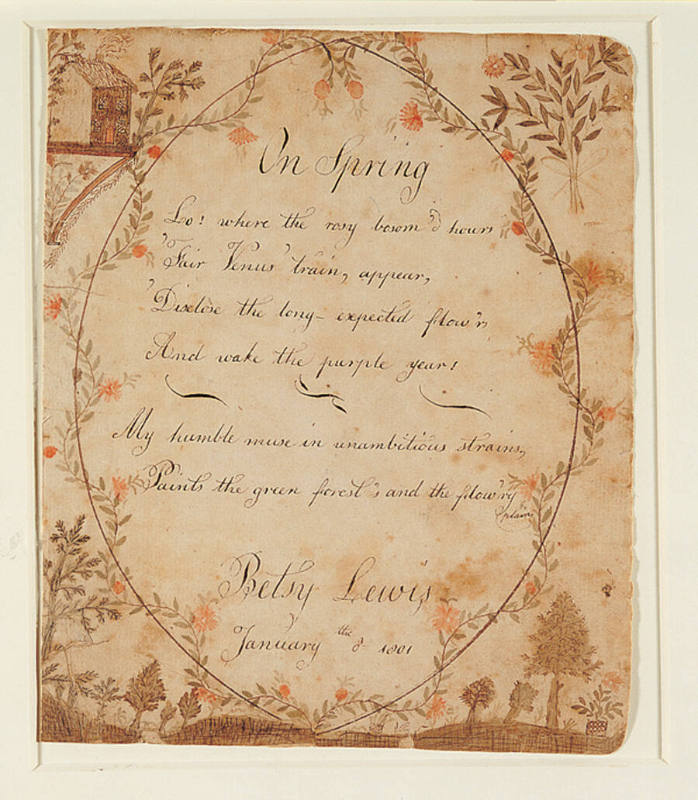 On Spring
Lo! where the rosy bosom'd hours
'Fair Venus' train, appear,
'Disclose the long-expected flow'rs
And wake the purple year!
My humble muse in unambitious strains,
Paints the green forest's and the flow'ry
plain
Betsy Lewis
January the 1801